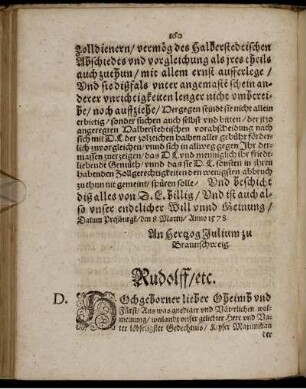 160
Zolldienern/ vermög des Halberstedtischen
Abschiedes vnd vorgleichung als jres theils
auch zuthun/ mit allem ernst aufferlege/
Vnd sie dißfals vnter angemaste schein an-
derer vnrichtigkeiten lenger nicht vmbtrei-
be/ noch auffziehe/ Dergegen seindt sie nicht allein
erbietig/ sonder suchen auch selbst vnd bitten/ der jtzo
angeregten Halberstedischen vorabschiedung nach
sich mit D.L. der zolzeichen halben aller gebühr förder-
lich zuvorgleichen/ vnnd sich in allweg gegen Ihr der-
massen zuerzeigen/ das D.L. vnd menniglich ihr fried-
liebendt Gemüth/ vnnd das sie D.L. sonsten in ihren
habenden Zollgerechtigkeiten den wenigsten abbruch
zuthun nit gemeint/ spüren solle/ Vnd beschicht
diß alles von D.L. billig/ Vnd ist auch al-
so vnser endtlicher Will vnnd Meinung/
Datum Preßburgk/ den 8 Martij/ Anno 1578
An Hertzog Julium zu
Braunschweig.
Rudolff/ etc.
D. HOchgeborner lieber Oheimb vnd
Fürst/ Aus was gnediger vnd Vätterlichen wol-
meinung/ weilandt vnser geliebter Herr vnd Va-
ter löbseligster Gedechtnis/ Kayser Maximilian
der